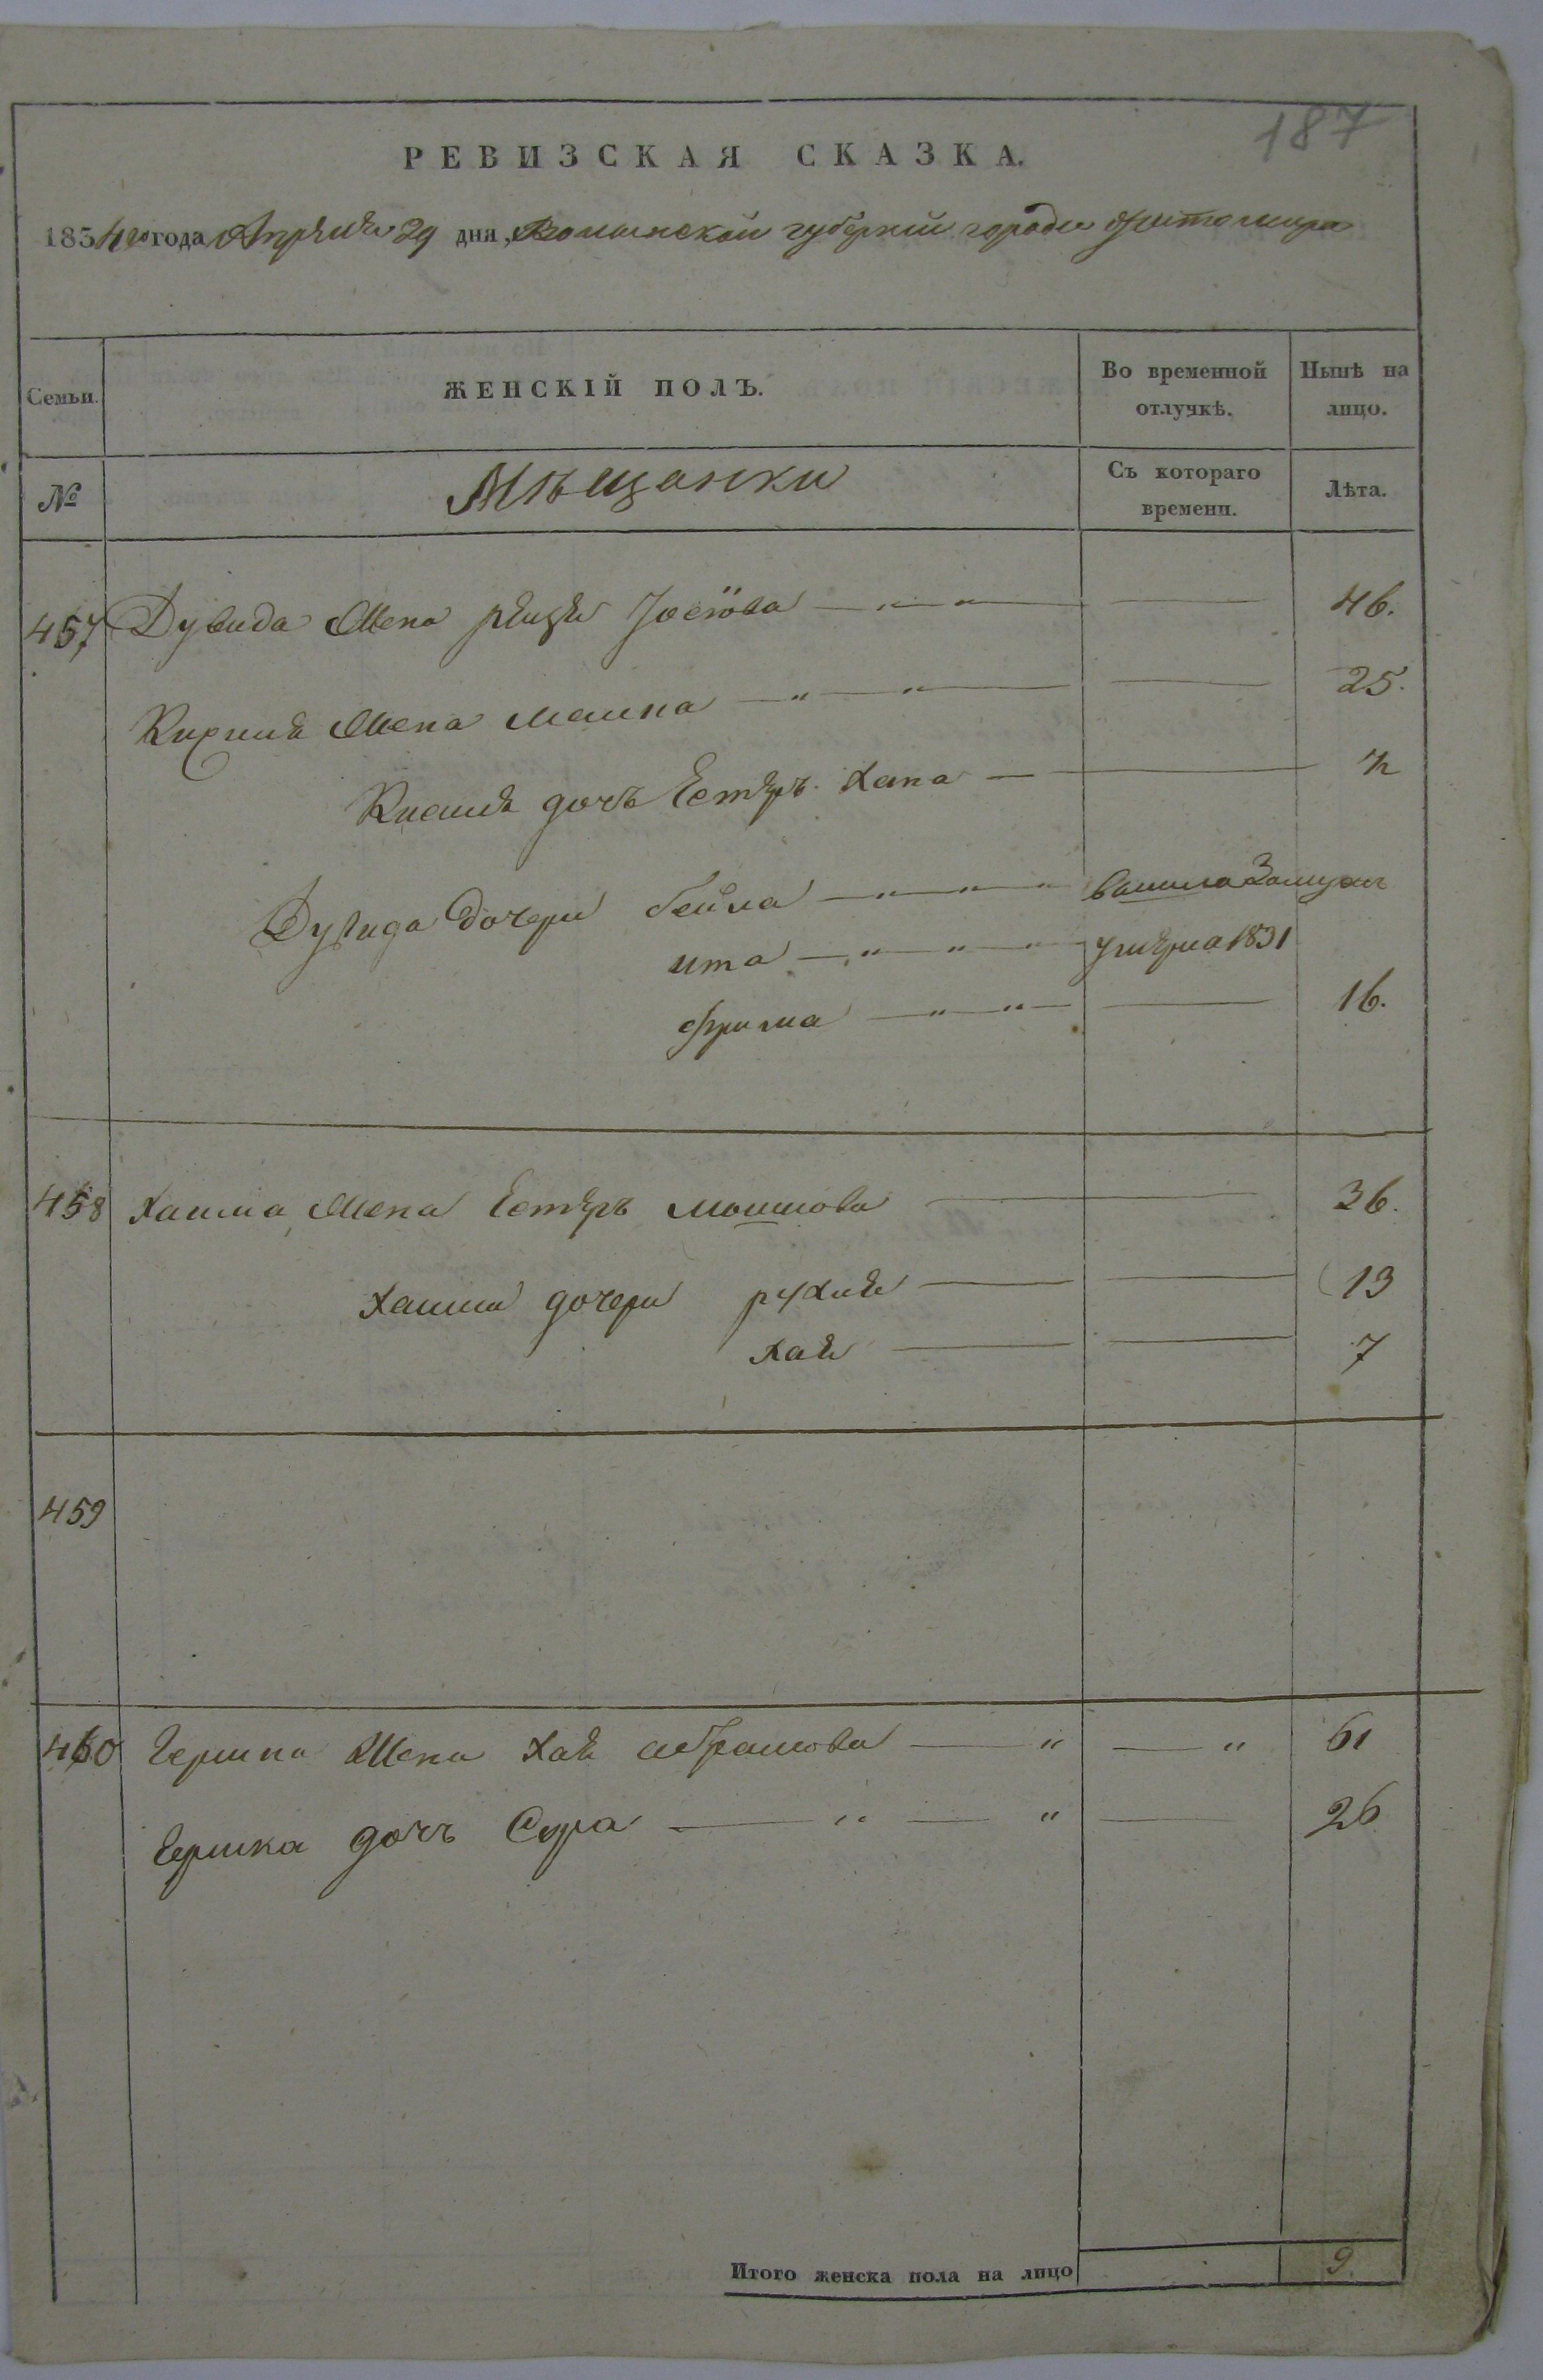 187
РЕВИЗСКАЯ СКАЗКА.
1834го года Апреля 29 дня, Волынской губернии города Житомира
Семьи. ЖЕНСКІЙ ПОЛЪ. Во временной отлучкѣ. Нынѣ на лицо.
№ Мѣщанки Съ котораго времени. Лѣта.
457 Дувида Жена Рейзя Іосіова — „ — „ — — 46.
Жена Малка — „ — „ — — 25.
дочь Естеръ Хана — —
Дувида Дочери бейла — „ — „ — „ вышла Замужъ
ита — „ — „ — „ умерла 1831
фрима — „ — „ — — 16.
458 Хаима Жена Естеръ мошкова — 36.
Хаима дочери рухля — — 13
хая — — 7
459
460 Гершка Жена Хая абрамова — „ — „ 61
Гершка дочь Сура — „ — „ — 26
Итого женска пола на лицо 9.